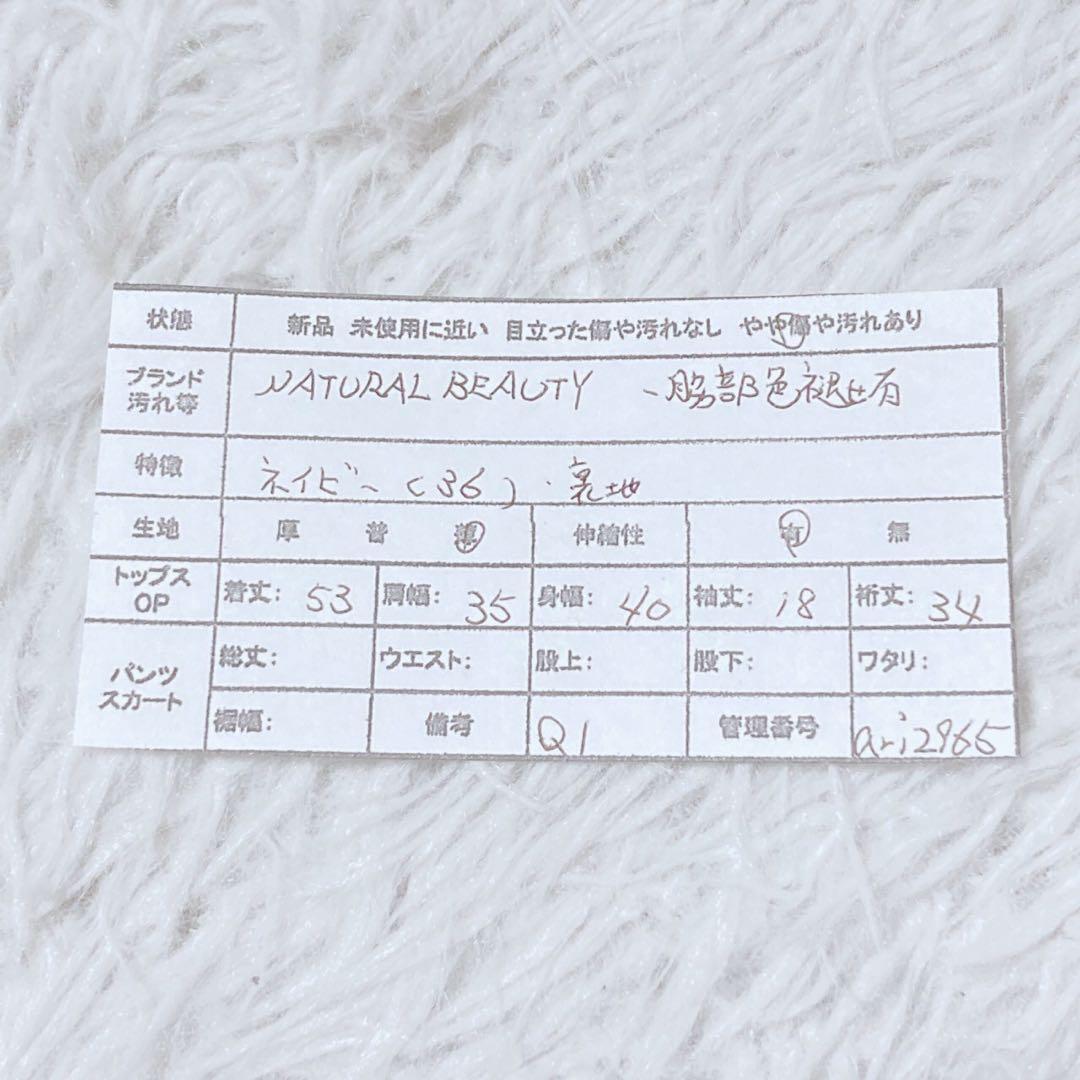 状態 新品 未使用に近い 目立った傷や汚れなし やや傷や汚れあり
ブランド 汚れ等 NATURAL BEAUTY 脇部色褪せ有
特徴 ネイビー (36) ・裏地
生地 厚 普 薄 伸縮性 有 無
トップス OP 着丈: 53 肩幅: 35 身幅: 40 袖丈: 18 裄丈: 34
パンツ スカート 総丈: ウエスト: 股上: 股下: ワタリ:
裾幅: 備考 Q1 管理番号 ari2965